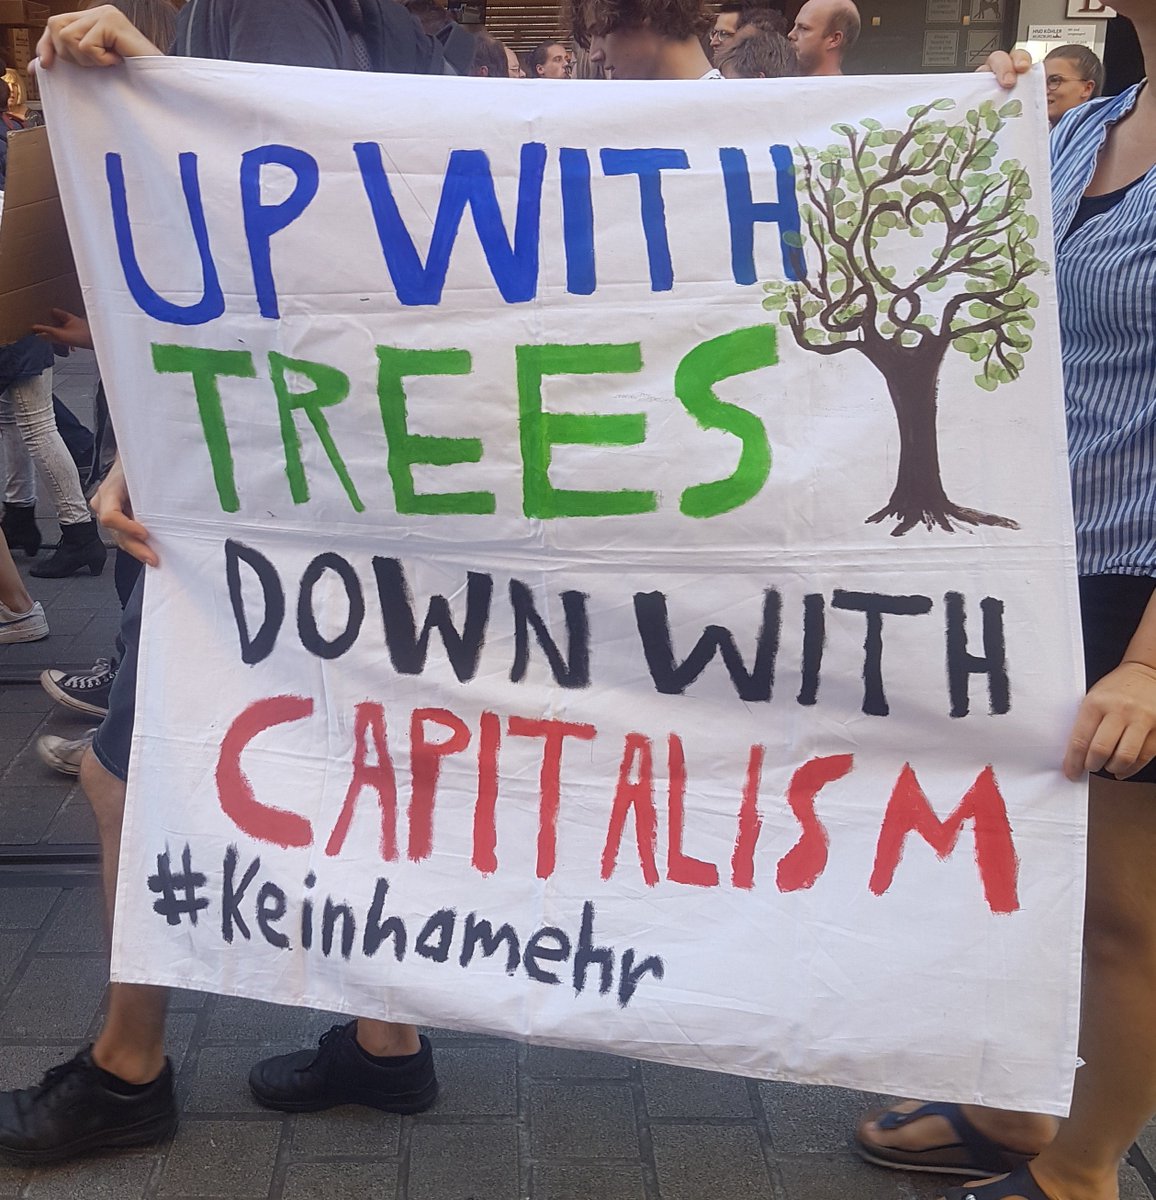 UP WITH
TREES
DOWN WITH
CAPITALISM
#Keinhamehr
HNO KÖHLER